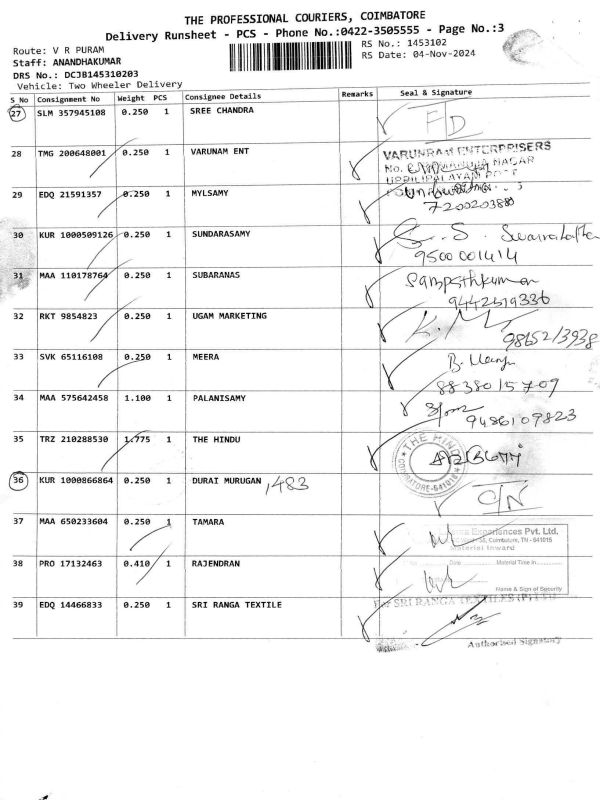 THE PROFESSIONAL COURIERS, COIMBATORE
Delivery Runsheet - PCS - Phone No.:0422-3505555 - Page No.:3
Route: V R PURAM
RS No.: 1453102
Staff: ANANDHAKUMAR
RS Date: 04-Nov-2024
DRS No.: DCJB145310203
Vehicle: Two Wheeler Delivery
S No Consignment No Weight PCS Consignee Details Remarks Seal & Signature
27 SLM 357945108 0.250 1 SREE CHANDRA
28 TMG 200648001 0.250 1 VARUNAM ENT VARUNRAM ENTERPRISERS
No. NAGAR
UPPILIPALAYAM POST
29 EDQ 21591357 0.250 1 MYLSAMY
7200203880
30 KUR 1000509126 0.250 1 SUNDARASAMY S.
9500001414
31 MAA 110178764 0.250 1 SUBARANAS Sampathkumar
9442519336
32 RKT 9854823 0.250 1 UGAM MARKETING
98652/3938
33 SVK 65116108 0.250 1 MEERA B.
8838015709
34 MAA 575642458 1.100 1 PALANISAMY
9486109823
35 TRZ 210288530 1.775 1 THE HINDU THE HINDU
COIMBATORE-641018
36 KUR 1000866864 0.250 1 DURAI MURUGAN 1483 C/N
37 MAA 650233604 0.250 1 TAMARA Experiences Pvt. Ltd.
Coimbatore, TN - 641015
Material Inward
38 PRO 17132463 0.410 1 RAJENDRAN Date Material Time in
Name & Sign of Security
39 EDQ 14466833 0.250 1 SRI RANGA TEXTILE For SRI RANGA TEXTILES (P) LTD
Authorised Signatory